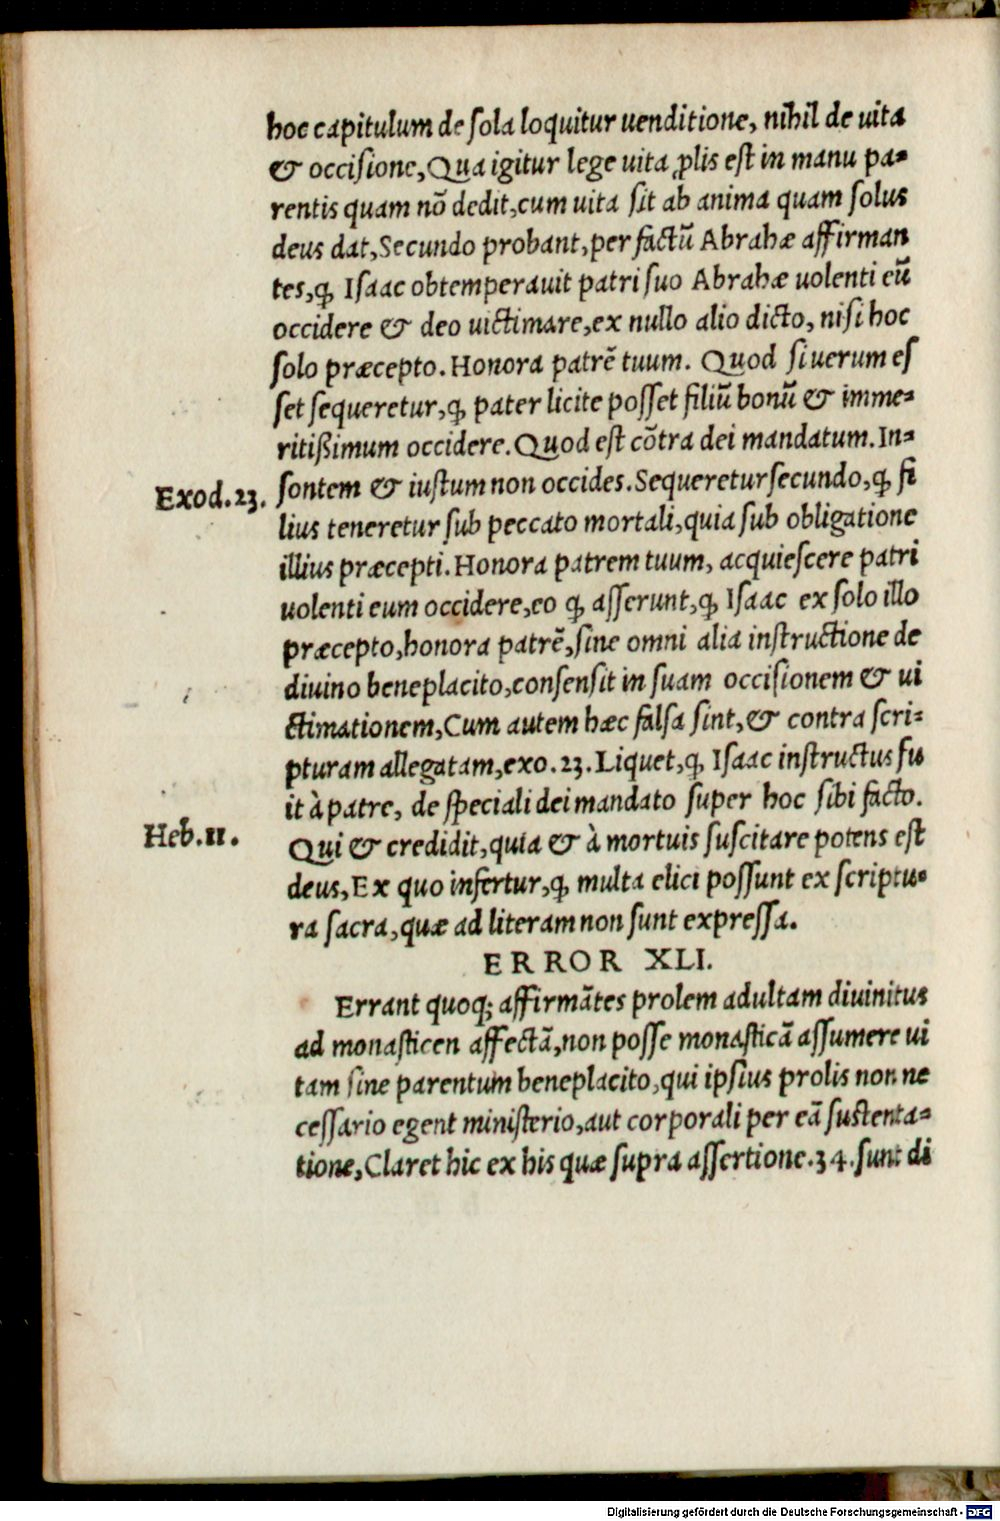 hoc capitulum de sola loquitur uenditione, nihil de uita
& occisione, Qua igitur lege uita ꝓlis est in manu pa-
rentis quam nõ dedit, cum uita sit ab anima quam solus
deus dat, Secundo probant, per factũ Abrahæ affirman
tes, ꝙ Isaac obtemperauit patri suo Abrahæ uolenti eũ
occidere & deo uictimare, ex nullo alio dicto, nisi hoc
solo præcepto. Honora patrẽ tuum. Quod si uerum es
set sequeretur, ꝙ pater licite posset filiũ bonũ & imme-
ritißimum occidere. Quod est cõtra dei mandatum. In-
Exod. 23. sontem & iustum non occides. Sequeretur secundo, ꝙ fi
lius teneretur sub peccato mortali, quia sub obligatione
illius præcepti. Honora patrem tuum, acquiescere patri
uolenti eum occidere, eo ꝙ asserunt, ꝙ Isaac ex solo illo
præcepto, honora patrẽ, sine omni alia instructione de
diuino beneplacito, consensit in suam occisionem & ui
ctimationem, Cum autem hæc falsa sint, & contra scri-
pturam allegatam, exo. 23. Liquet, ꝙ Isaac instructus fu
it à patre, de speciali dei mandato super hoc sibi facto.
Heb. 11. Qui & credidit, quia & à mortuis suscitare potens est
deus, Ex quo infertur, ꝙ multa elici possunt ex scriptu-
ra sacra, quæ ad literam non sunt expressa.
ERROR XLI.
Errant quoq; affirmãtes prolem adultam diuinitus
ad monasticen affectã, non posse monasticã assumere ui
tam sine parentum beneplacito, qui ipsius prolis non ne
cessario egent ministerio, aut corporali per eã sustenta-
tione, Claret hic ex his quæ supra assertione. 34. sunt di
Digitalisierung gefördert durch die Deutsche Forschungsgemeinschaft - DFG